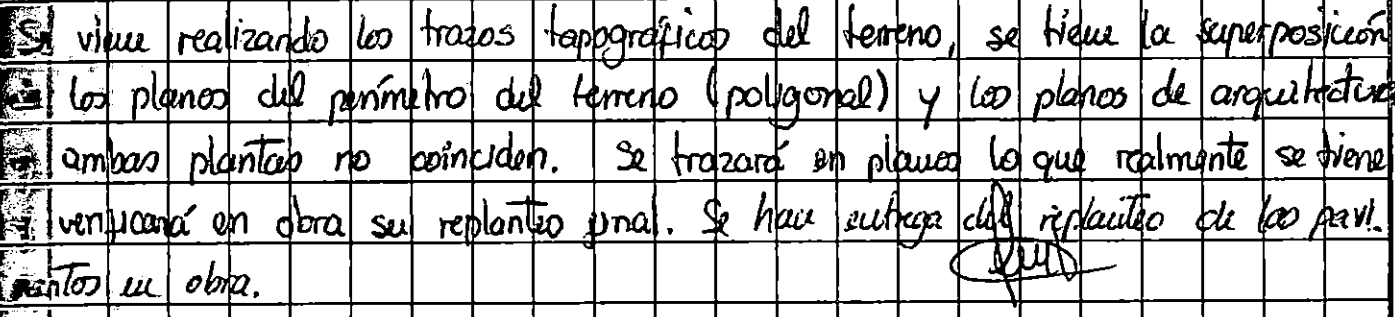 Se viene realizando los trazos topográficos del terreno, se tiene la superposición
los planos del perímetro del terreno (poligonal) y los planos de arquitectura
ambas plantas no coinciden. Se trazará en planos lo que realmente se tiene
verificará en obra su replanteo final. Se hace entrega del replanteo de los pavi.
mentos en obra.